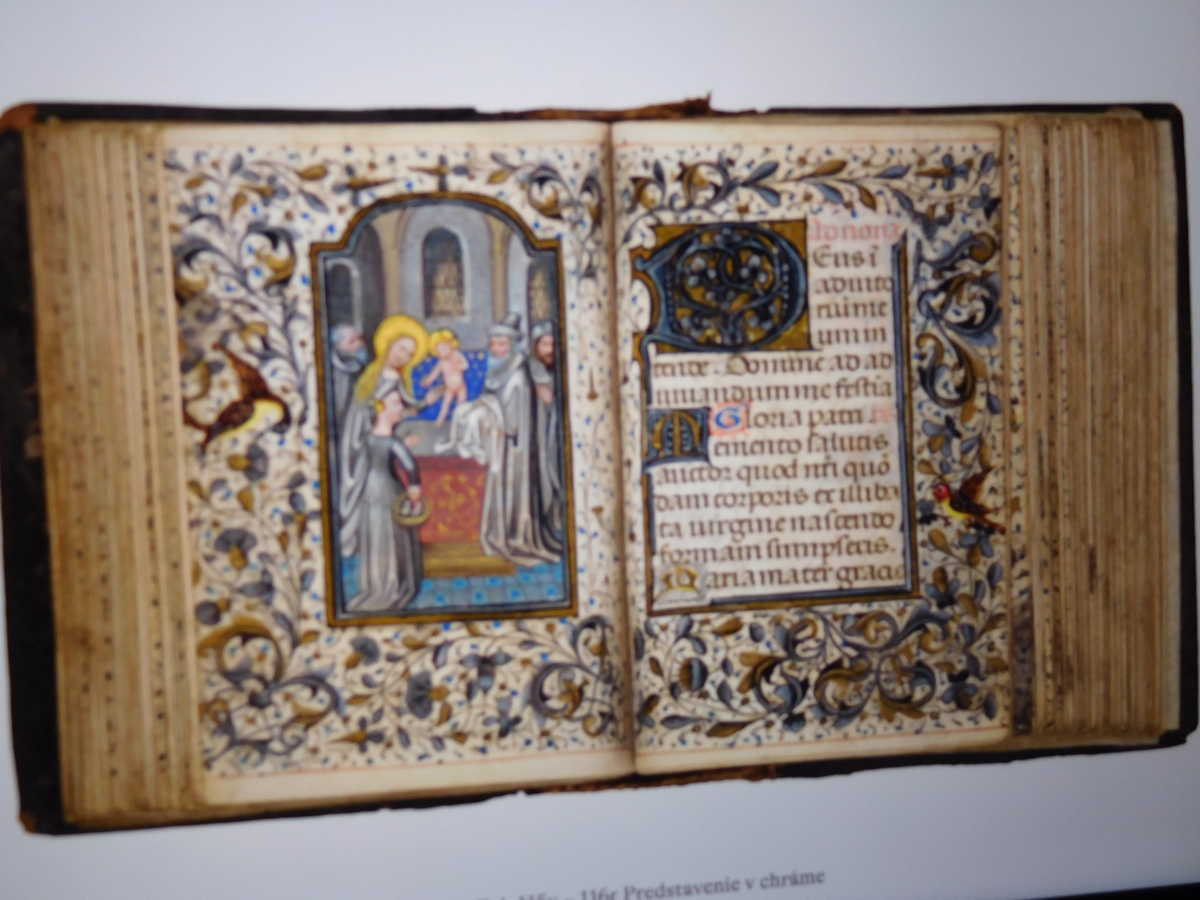 Ad nonā
Eus ī
adiuto
rium me
um in
tende . Domine ad ad
iuuandum me festia
Gloria patri
Memento salutis
auctor quod nr̄i quō
dam corporis ex illiba
ta uirgine nascendo
formam sumpseris .
Maria mater graci
115v – 116r Predstavenie v chráme